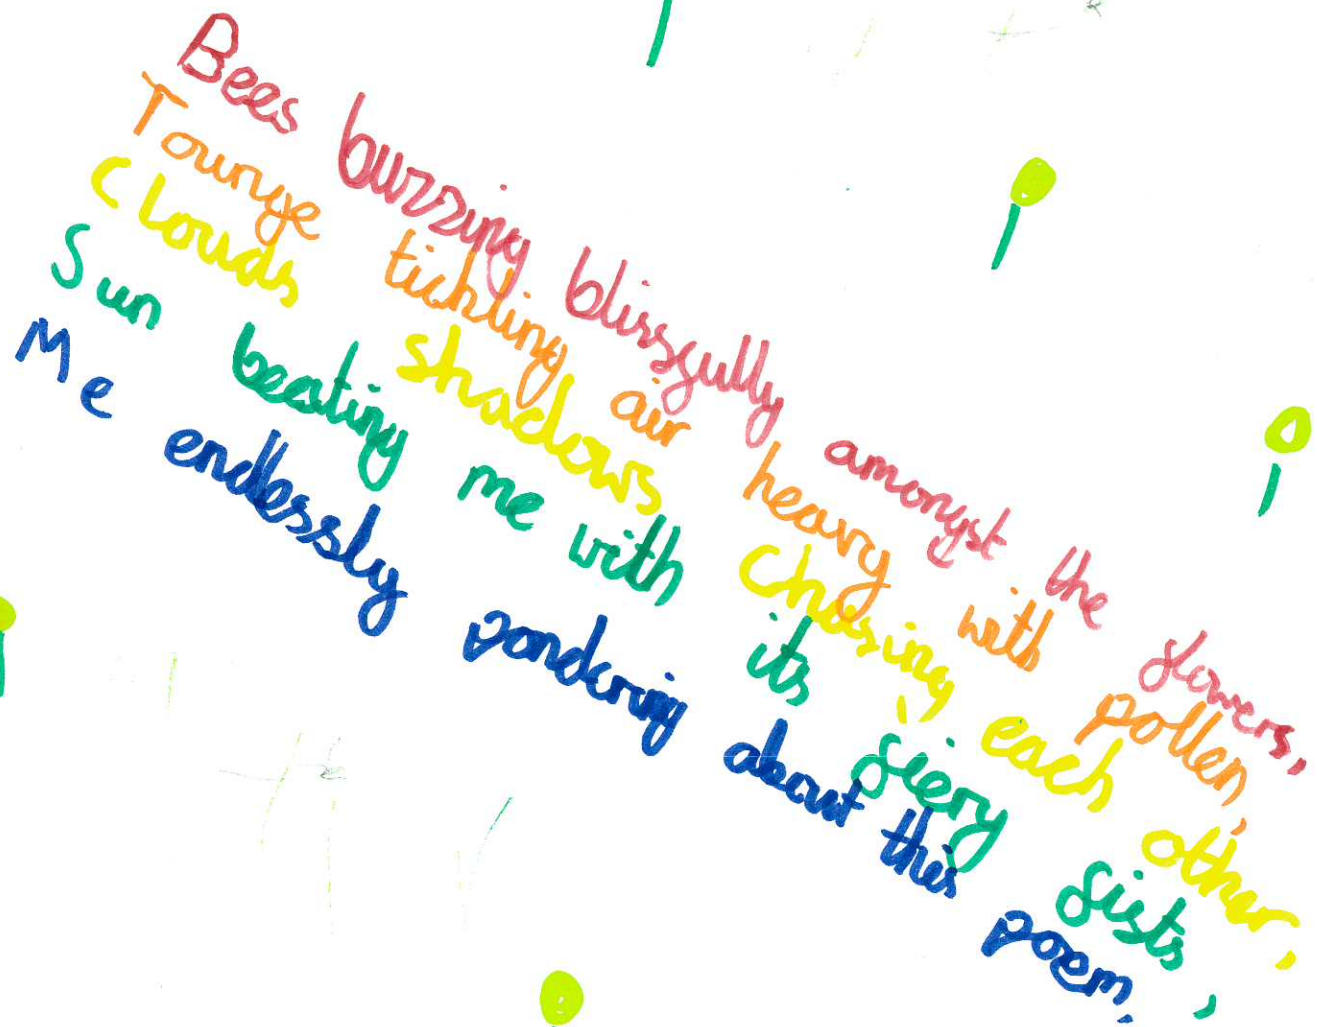 Bees buzzing blissfully amongst the flowers,
Tounge tickling air heavy with pollen,
Clouds shadows chasing each other,
Sun beating me with its fiery fists,
Me endlessly pondering about this poem,